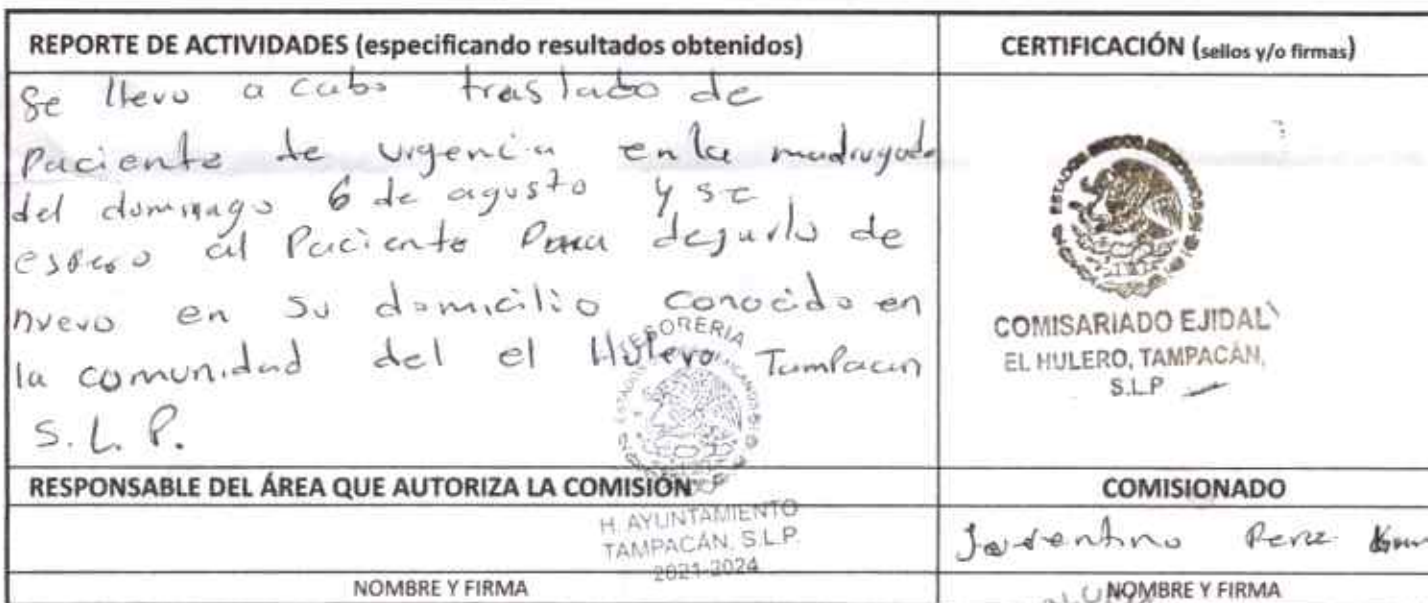 REPORTE DE ACTIVIDADES (especificando resultados obtenidos)
CERTIFICACIÓN (sellos y/o firmas)
Se llevo a cabo traslado de
Paciente de urgencia en la madrugada
del domingo 6 de agusto y se
espero al Paciente Para dejarlo de
nuevo en su domicilio conocido en
la comunidad del el Hulero Tampacan
S. L. P.
COMISARIADO EJIDAL
EL HULERO, TAMPACÁN,
S.L.P
TESORERIA
H. AYUNTAMIENTO
TAMPACÁN, S.L.P.
2021-2024
RESPONSABLE DEL ÁREA QUE AUTORIZA LA COMISIÓN
COMISIONADO
Perez
NOMBRE Y FIRMA
NOMBRE Y FIRMA